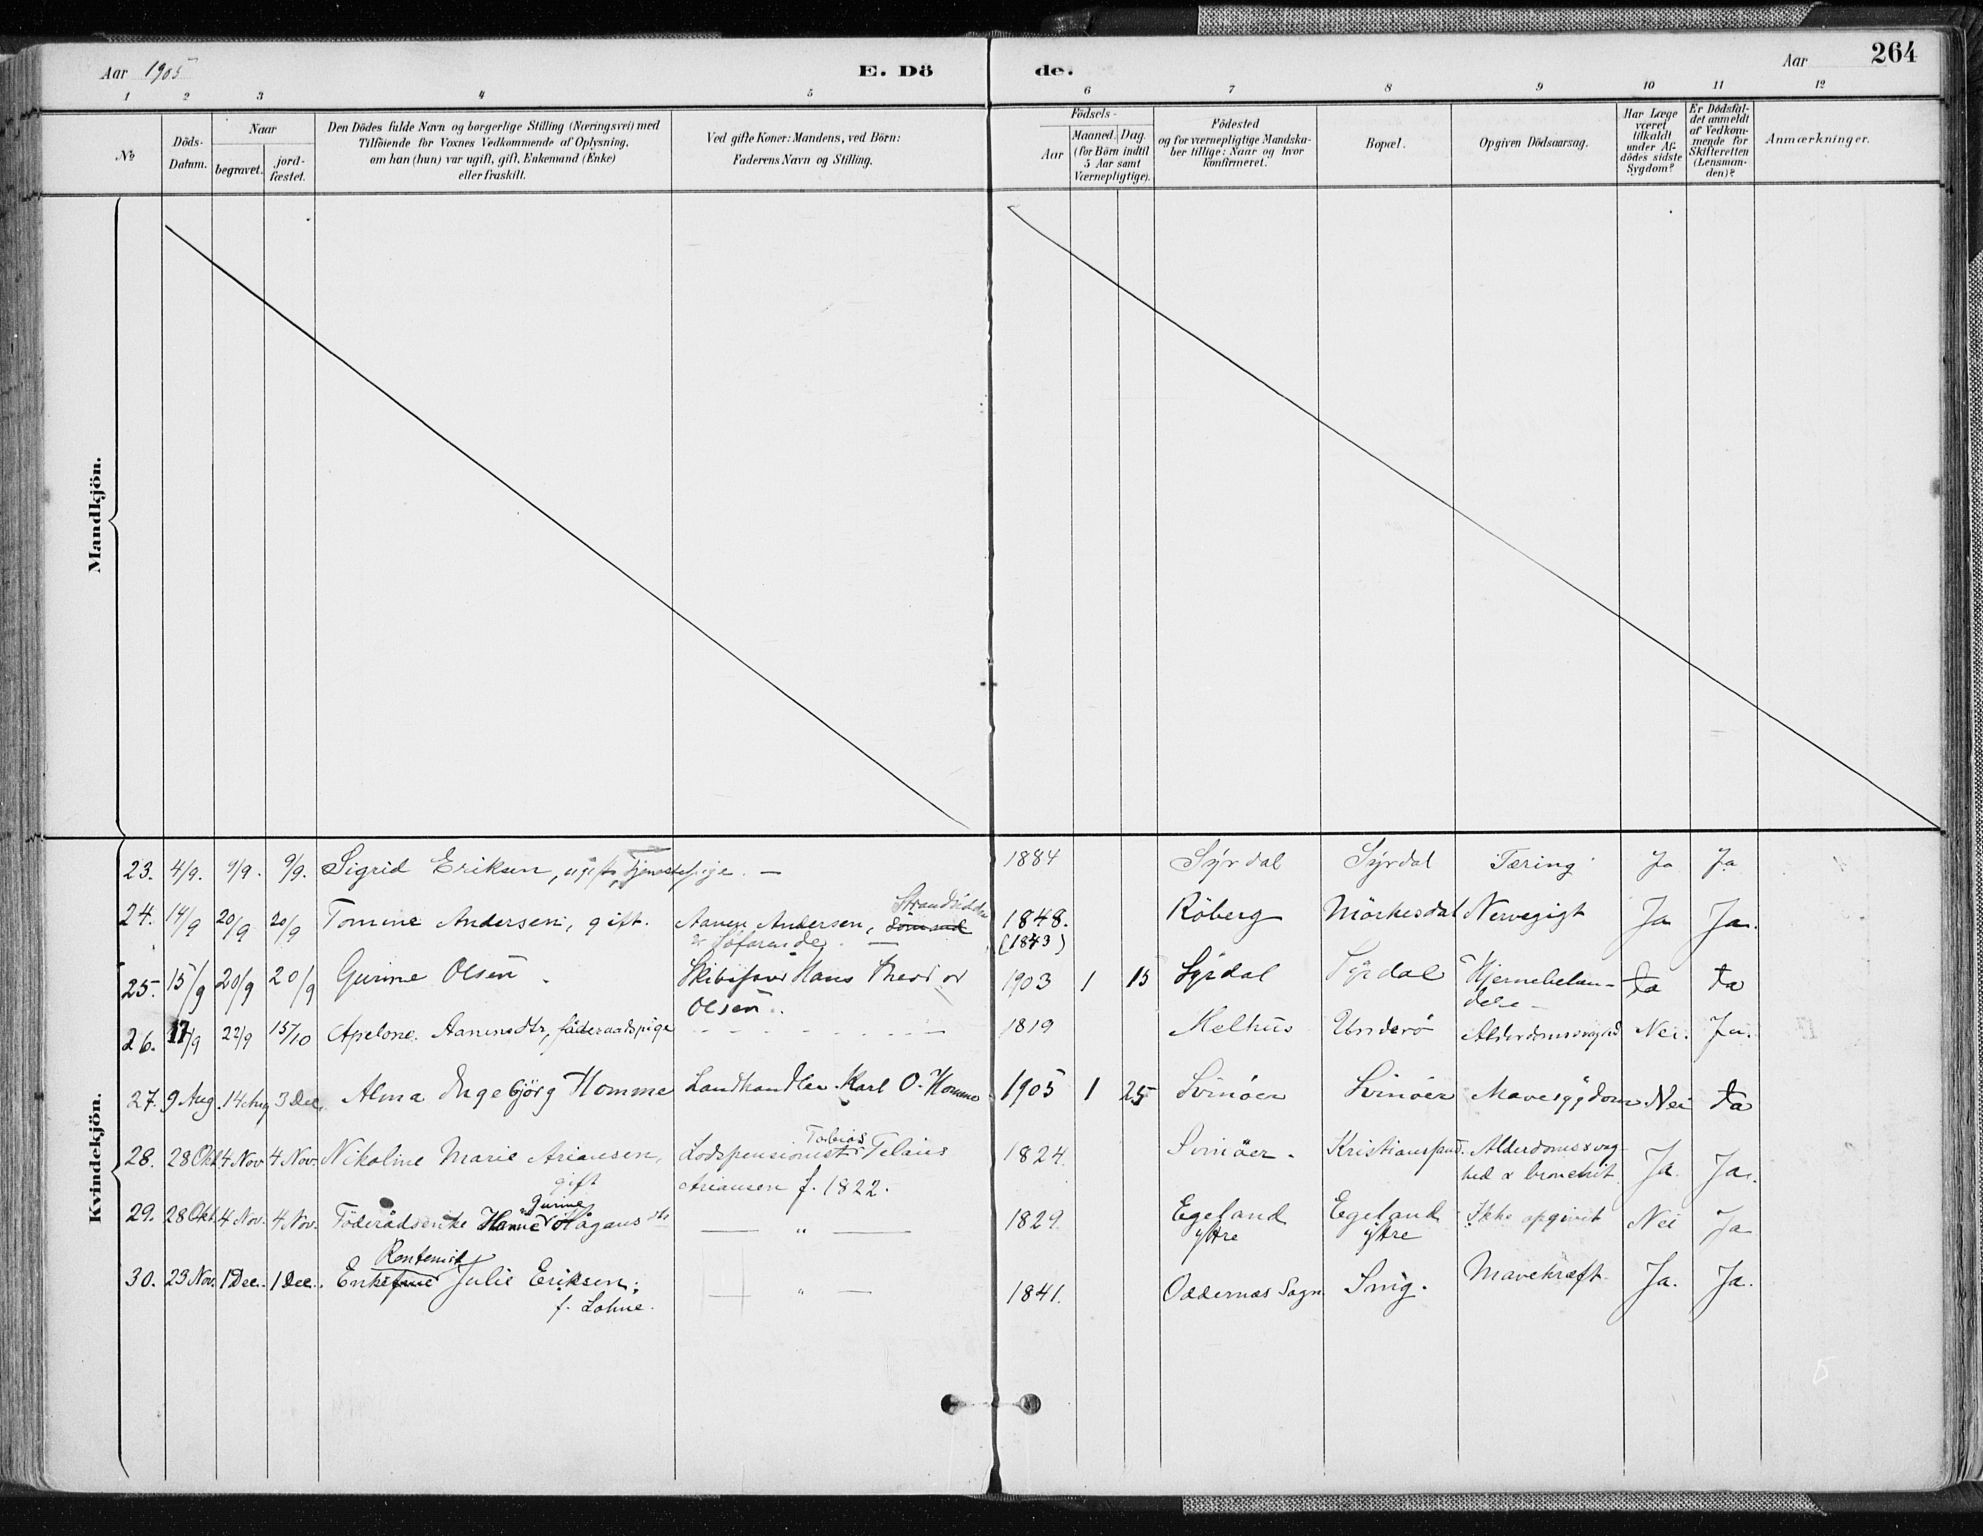 Aar 1905 E. Dö de. Aar 264
1 2 3 4 5 6 7 8 9 10 11 12
No
Döds-Datum.
Naar
begravet.
jord-fæstet.
Den Dödes fulde Navn og borgerlige Stilling (Næringsvei) med
Tilföiende for Voxnes Vedkommende af Oplysning,
om han (hun) var ugift, gift, Enkemand (Enke)
eller fraskilt.
Ved gifte Koner: Mandens, ved Börn:
Faderens Navn og Stilling.
Födsels-
Aar
Maaned. Dag.
(for Börn indtil
5 Aar samt
Værnepligtige).
Födested
og for værnepligtige Mandska-
ber tillige: Naar og hvor
konfirmeret.
Bopæl.
Opgiven Dödsaarsag.
Har Læge
været
tilkaldt
under Af-
dödes sidste
Sygdom?
Er Dödsfal-
det anmeldt
af Vedkom-
mende for
Skifteretten
(Lensman-
den)?
Anmærkninger.
Mandkjön.
Kvindekjön.
23. 4/9. 9/9. 9/9. Sigrid Eriksen, ugift, Tjenestepige. — 1884 Syrdal Syrdal Tæring Ja Ja
24. 14/9 20/9 20/9 Tomine Andersen, gift. Aanen Andersen, Sömand 1848. Röberg Mörkesdal Nervegigt Ja Ja.
Söfarende. — (1843)
25. 15/9 20/9 20/9 Gurine Olsen. Hans Theodor 1903 1 15 Syrdal Syrdal Hjernebetæn- Ja Ja
Olsen. delse
26. 17/9 22/9 15/10 Apelone Aanensdtr, föderaadspige 1819 Melhus Underö Alderdomssvaghed Nei. Ja.
27. 9 Aug. 14 Aug 3 Dec. Alma Ingebjörg Homme Landhandler Karl O. Homme 1905 1 25 Svinöer Svinöer Mavesygdom Nei Ja
28. 28 Okt 4 Nov 4 Nov. Nikoline Marie Ariansen, Lodspensionist Tobias 1824. Svinöer. Kristianssand. Alderdomssvag- Ja Ja.
gift Ariansen f. 1822. hed & bronchit
29. 28 Okt. 4 Nov. 4 Nov. Föderådsenke Gurine — „ — 1829. Egeland Egeland Ikke opgivet Nei Ja
ytre ytre
Rentenist
30. 23 Nov. 1 Dec. 1 Dec. Enkefrue Julie Eriksen, — „ — 1841. Oddernæs Sogn Snig. Mavekræft. Ja. Ja.
f. Lohne.